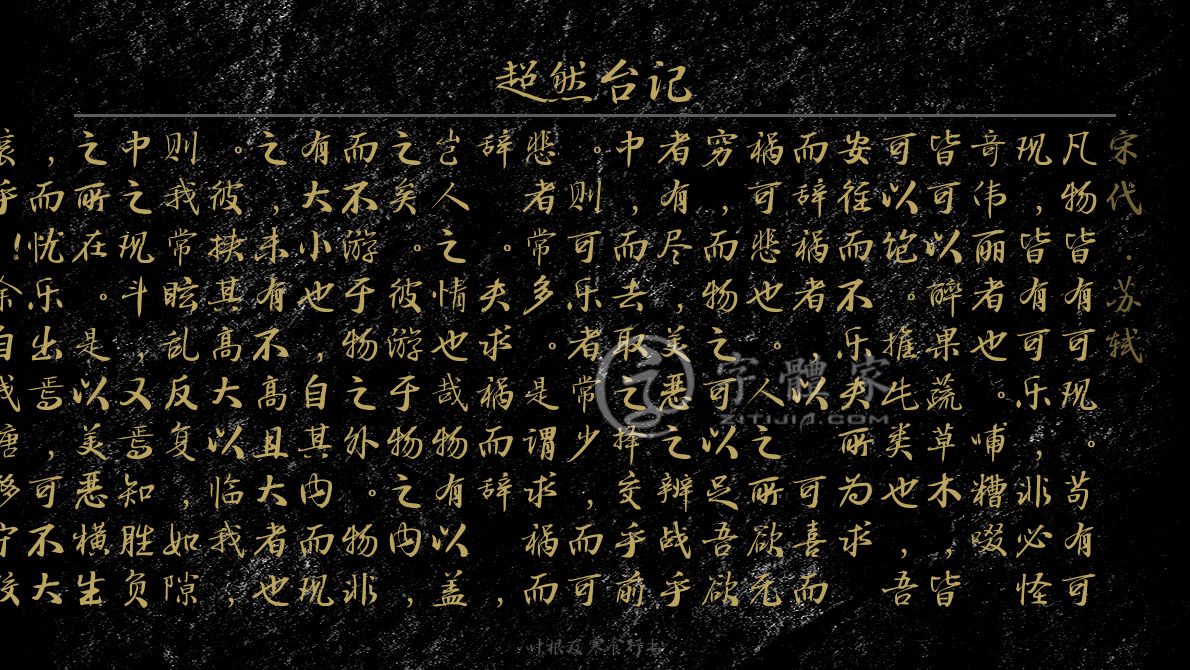 超然台记
宋代·苏轼
凡物皆有可观。苟有可
观，皆有可乐，非必怪
奇伟丽者也。哺糟啜
皆可以醉。果蔬草木，皆
可以饱。推此类也，吾
安往而不乐 夫所为求
而辞祸者，以 可喜而
祸可悲也。人之所欲无
穷，而物之可以足吾欲
者有尽，美恶之辨战乎
中，而去取之择交乎前
。则可乐者常少，而可
悲者常多。是谓求祸而
辞 。夫求祸而辞 ，
岂人之情也哉物有以盖
之矣。彼游于物之内，
而不游于物之外。物非
有大小也，自其内而观
之，未有不高且大者也
。彼挟其高大以临我，
则我常眩乱反复，如隙
中之观斗，又焉知胜负
之所在。是以美恶横生
，而忧乐出焉，可不大
哀乎！余自钱塘移守胶
字體家
ZITIJIA.COM
叶根友寒食行书